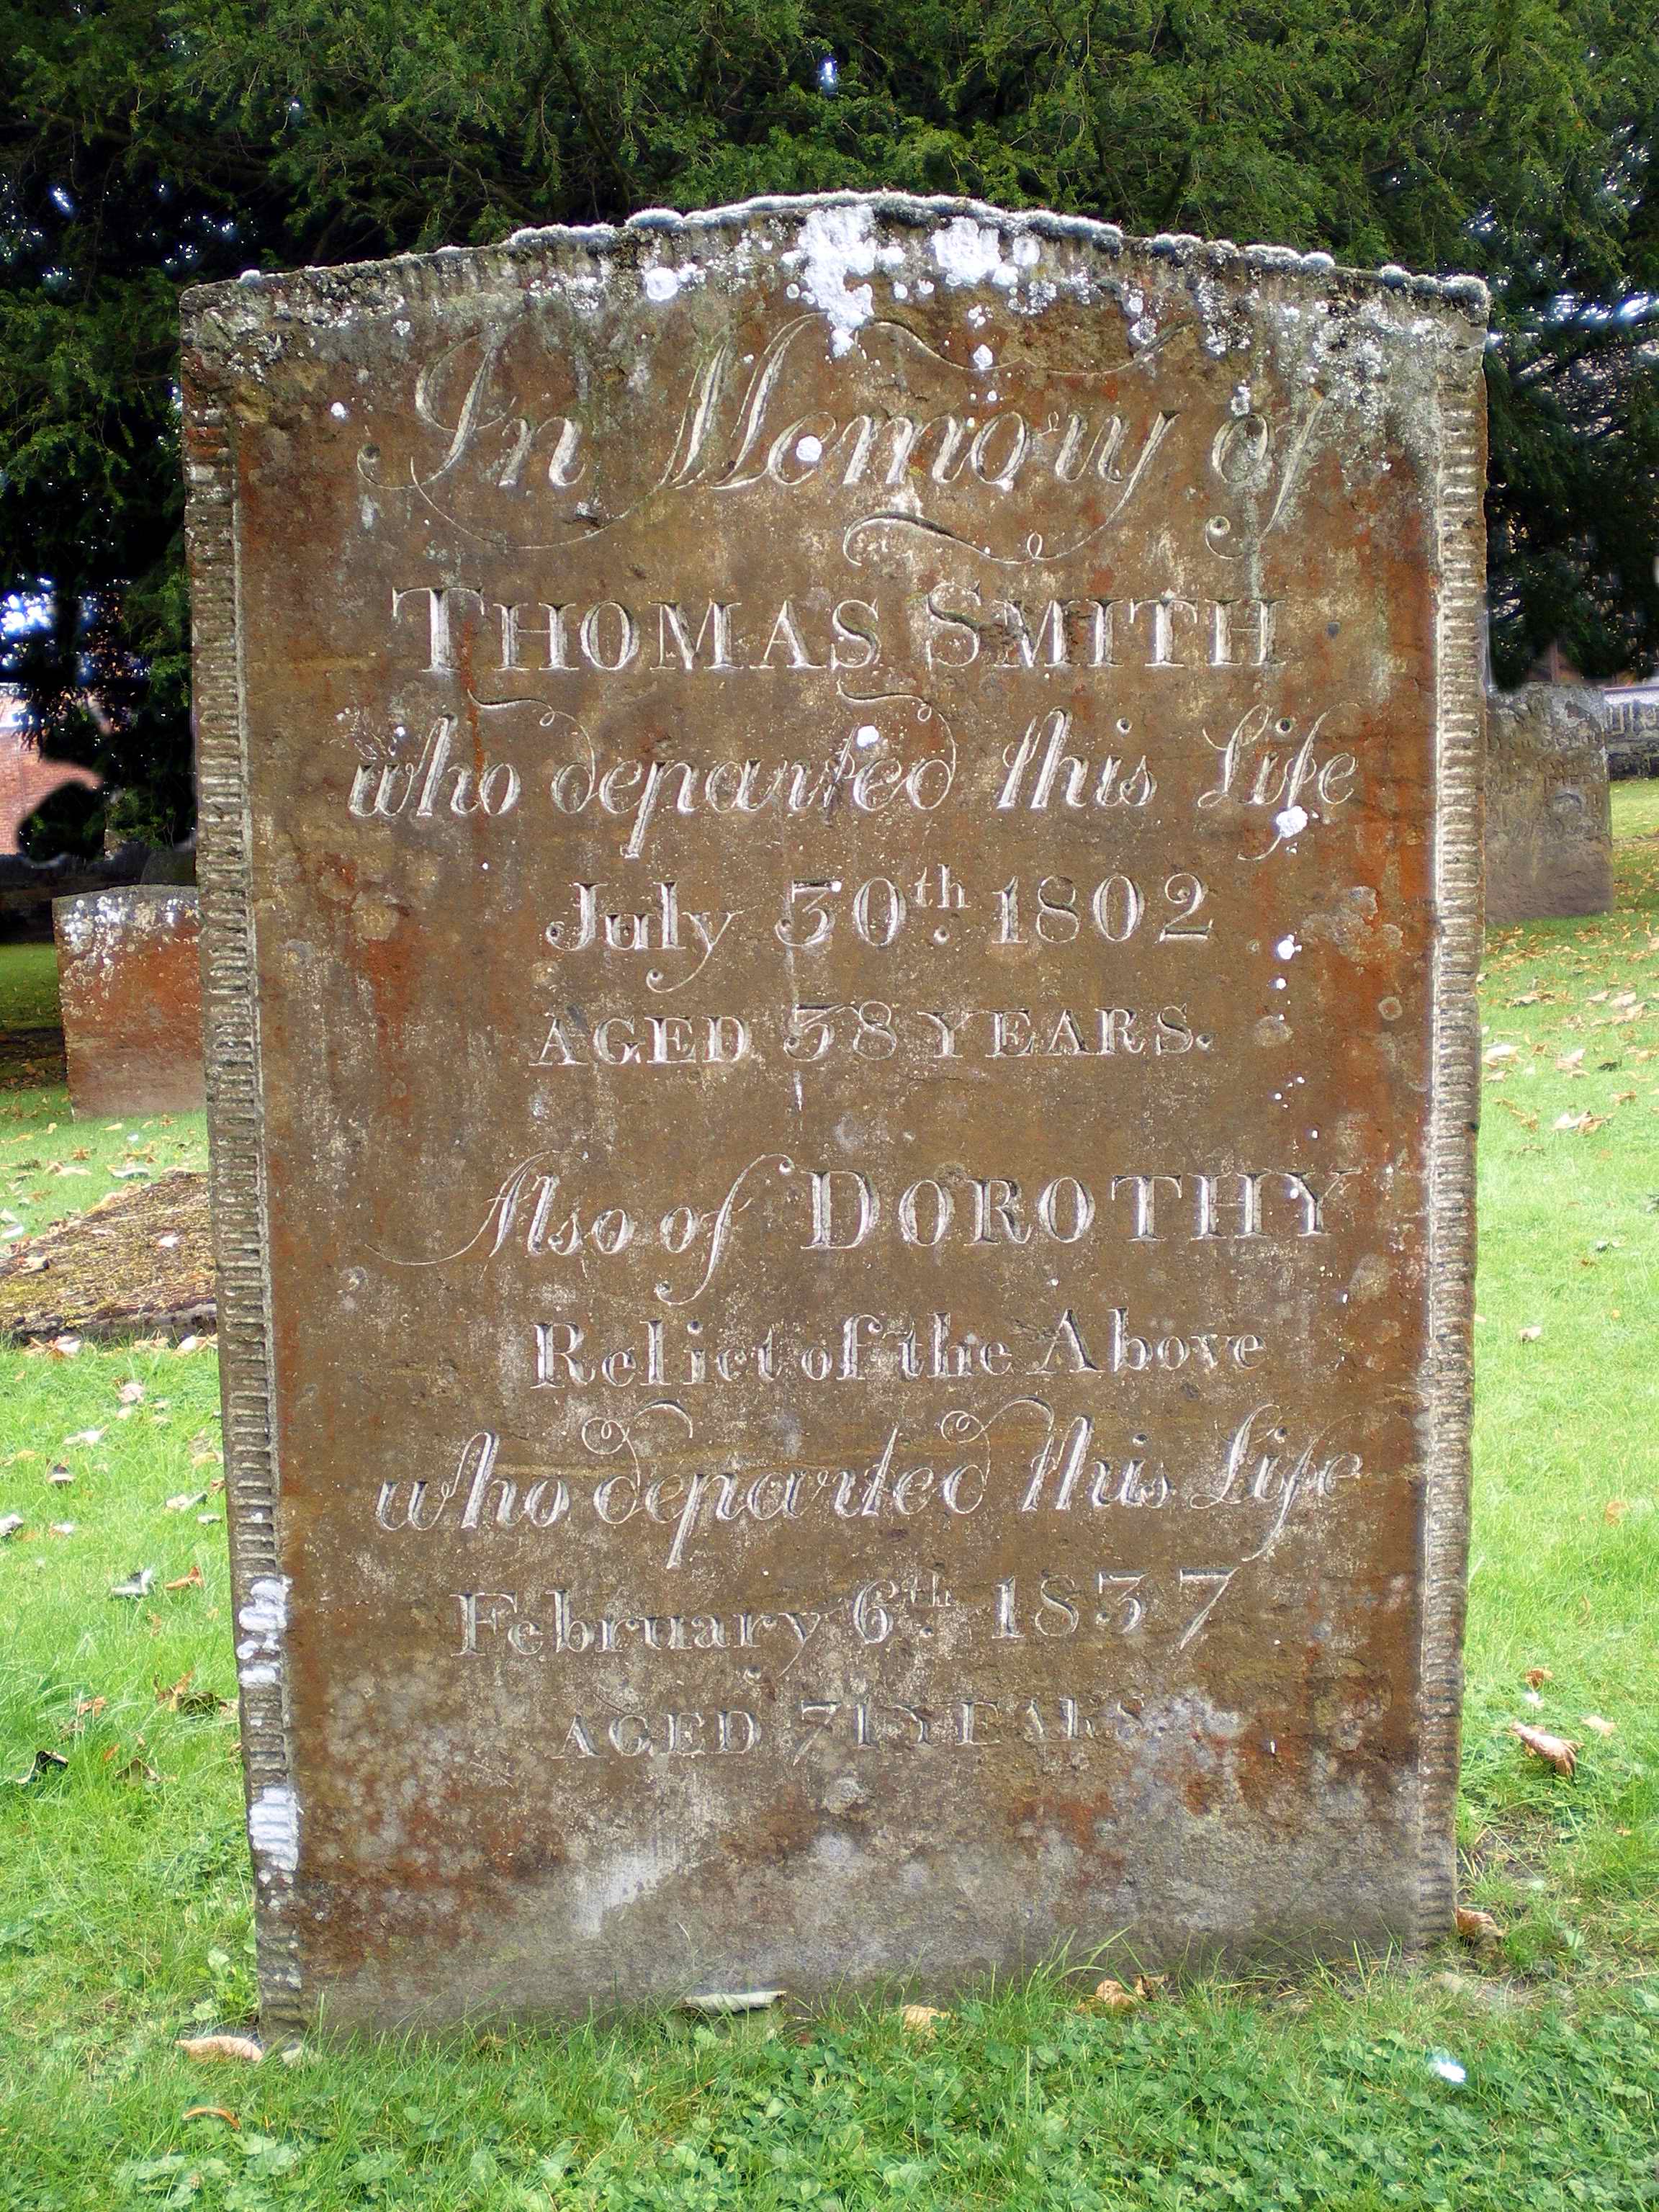 In Memory of
THOMAS SMITH
who departed this Life
July 30th. 1802
AGED 38 YEARS.
Also of DOROTHY
Relict of the Above
who departed this Life
February 6th. 1837
AGED 71 YEARS.